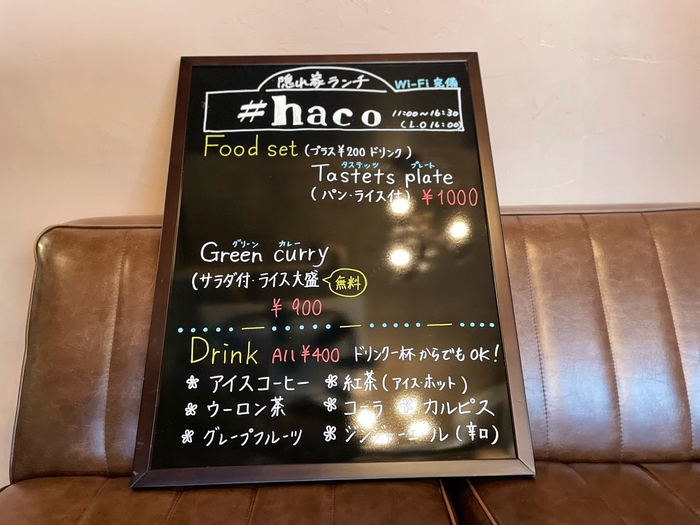 隠れ家ランチ Wi-Fi 完備
#haco 11:00~16:30
(L.O 16:00)
Food set (プラス¥200 ドリンク)
タステッツ プレート
Tastets plate
(パン・ライス付) ¥1000
グリーン カレー
Green curry
(サラダ付・ライス大盛 無料
¥900
Drink All ¥400 ドリンク一杯からでもOK!
アイスコーヒー 紅茶(アイス・ホット)
ウーロン茶 コーラ カルピス
グレープフルーツ ジンジャーエール(辛口)